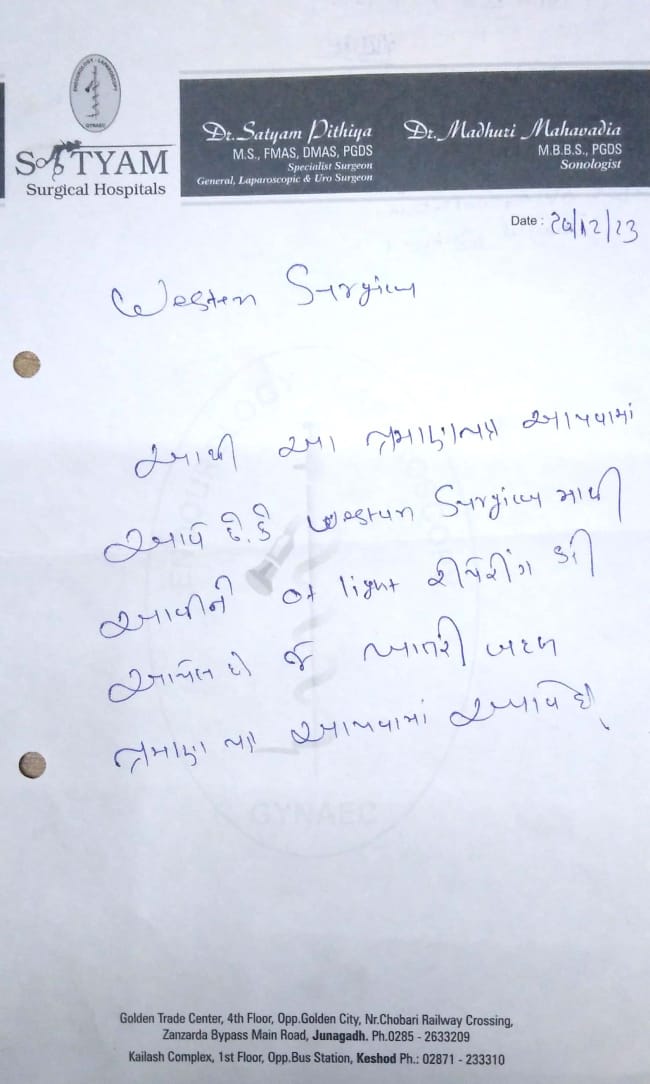 SATYAM
Surgical Hospitals
Dr. Satyam Pithiya
M.S., FMAS, DMAS, PGDS
Specialist Surgeon
General, Laparoscopic & Uro Surgeon
Dr. Madhuri Mahavadia
M.B.B.S., PGDS
Sonologist
Date : 26/12/23
Western Surgical
આથી આ પ્રમાણપત્ર આપવામાં
આવે છે. કે Western Surgical માથી
આવીને OT light રીપેરીંગ કરી
આપેલ છે જે ખાતરી બદલ
પ્રમાણ પત્ર આપવામાં આવે છે
GYNAEC
Golden Trade Center, 4th Floor, Opp.Golden City, Nr.Chobari Railway Crossing,
Zanzarda Bypass Main Road, Junagadh. Ph.0285 - 2633209
Kailash Complex, 1st Floor, Opp.Bus Station, Keshod Ph.: 02871 - 233310